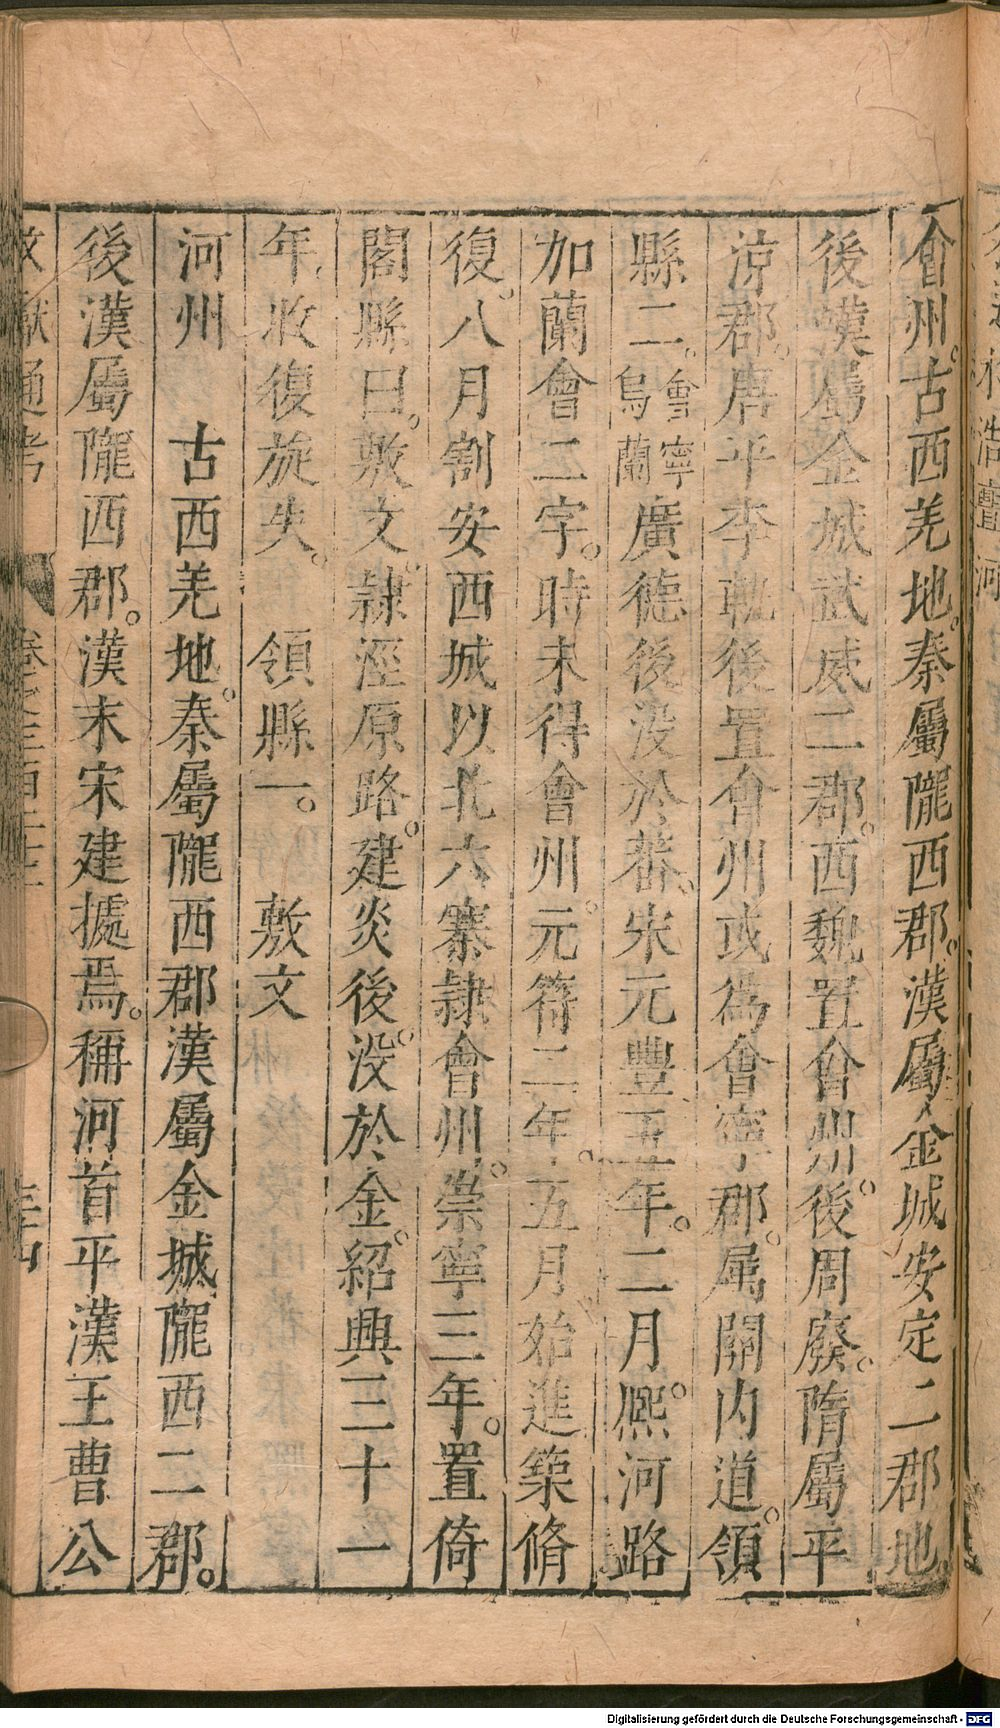 會州。古西羌地。秦屬隴西郡。漢屬金城安定二郡地
後漢屬金城武威二郡。西魏置會州。後周廢。隋屬平
涼郡。唐平李軌後置會州或為會寧郡。属關内道。領
縣二。會寧烏蘭廣德後没於蕃。宋元豐五年。二月。熙河路
加蘭會二字。時未得會州。元符二年。五月始進築脩
復。八月割安西城以北六寨隷會州。崇寧三年。置倚
閣縣曰。敷文。隷涇原路。建炎後。没於金。紹興三十一
年收復旋失。 領縣一。 敷文
河州 古西羌地。秦屬隴西郡漢屬金城隴西二郡。
後漢屬隴西郡。漢末宋建據焉。稱河首平漢王曹公
文獻通考 卷之三百二十二 三十四
Digitalisierung gefördert durch die Deutsche Forschungsgemeinschaft - DFG